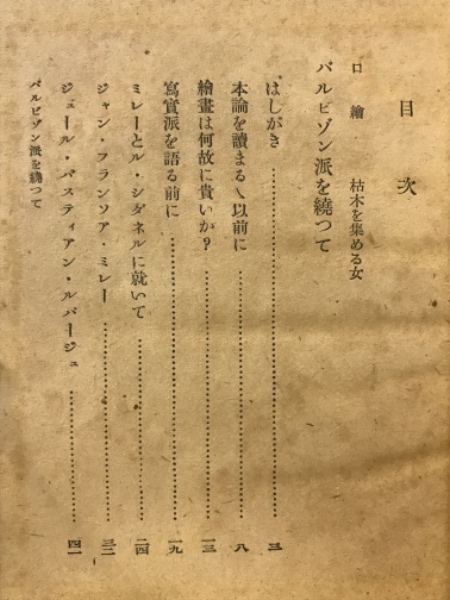 目次
口繪 枯木を集める女
バルビゾン派を繞つて
はしがき……三
本論を讀まるゝ以前に……八
繪畫は何故に貴いか？……一三
寫實派を語る前に……一九
ミレーとル・シダネルに就いて……二四
ジャン・フランソア・ミレー……三二
ジュール・バスティアン・ルパージュ……四一
バルビゾン派を繞つて